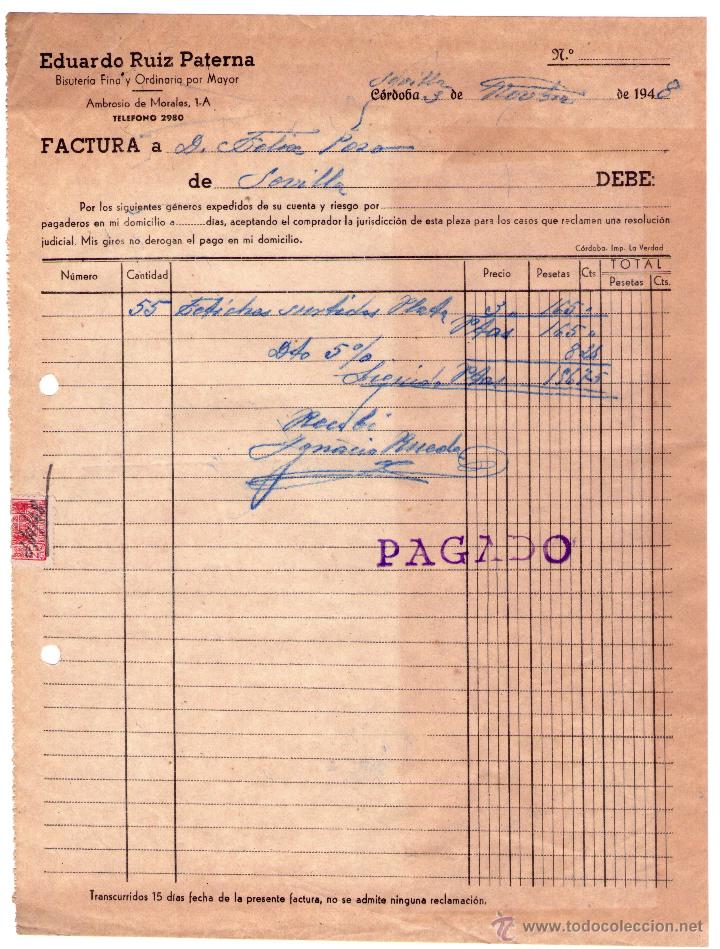 Eduardo Ruiz Paterna
Bisutería Fina y Ordinaria por Mayor
Ambrosio de Morales, 1-A
TELEFONO 2980
N.º
Sevilla
Córdoba 3 de Novbre de 1948
FACTURA a D. Felix Pozo
de Sevilla DEBE:
Por los siguientes géneros expedidos de su cuenta y riesgo por
pagaderos en mi domicilio a días, aceptando el comprador la jurisdicción de esta plaza para los casos que reclamen una resolución
judicial. Mis giros no derogan el pago en mi domicilio.
Córdoba- Imp. La Verdad
Número Cantidad Precio Pesetas Cts TOTAL
Pesetas Cts.
55 Fetiches surtidos Plata 3 „ 165 „
Ptas 165 „
Dto 5% 8 25
Líquido Ptas 156 75
Recibí
Ignacio Rueda
PAGADO
Transcurridos 15 días fecha de la presente factura, no se admite ninguna reclamación.
www.todocoleccion.net